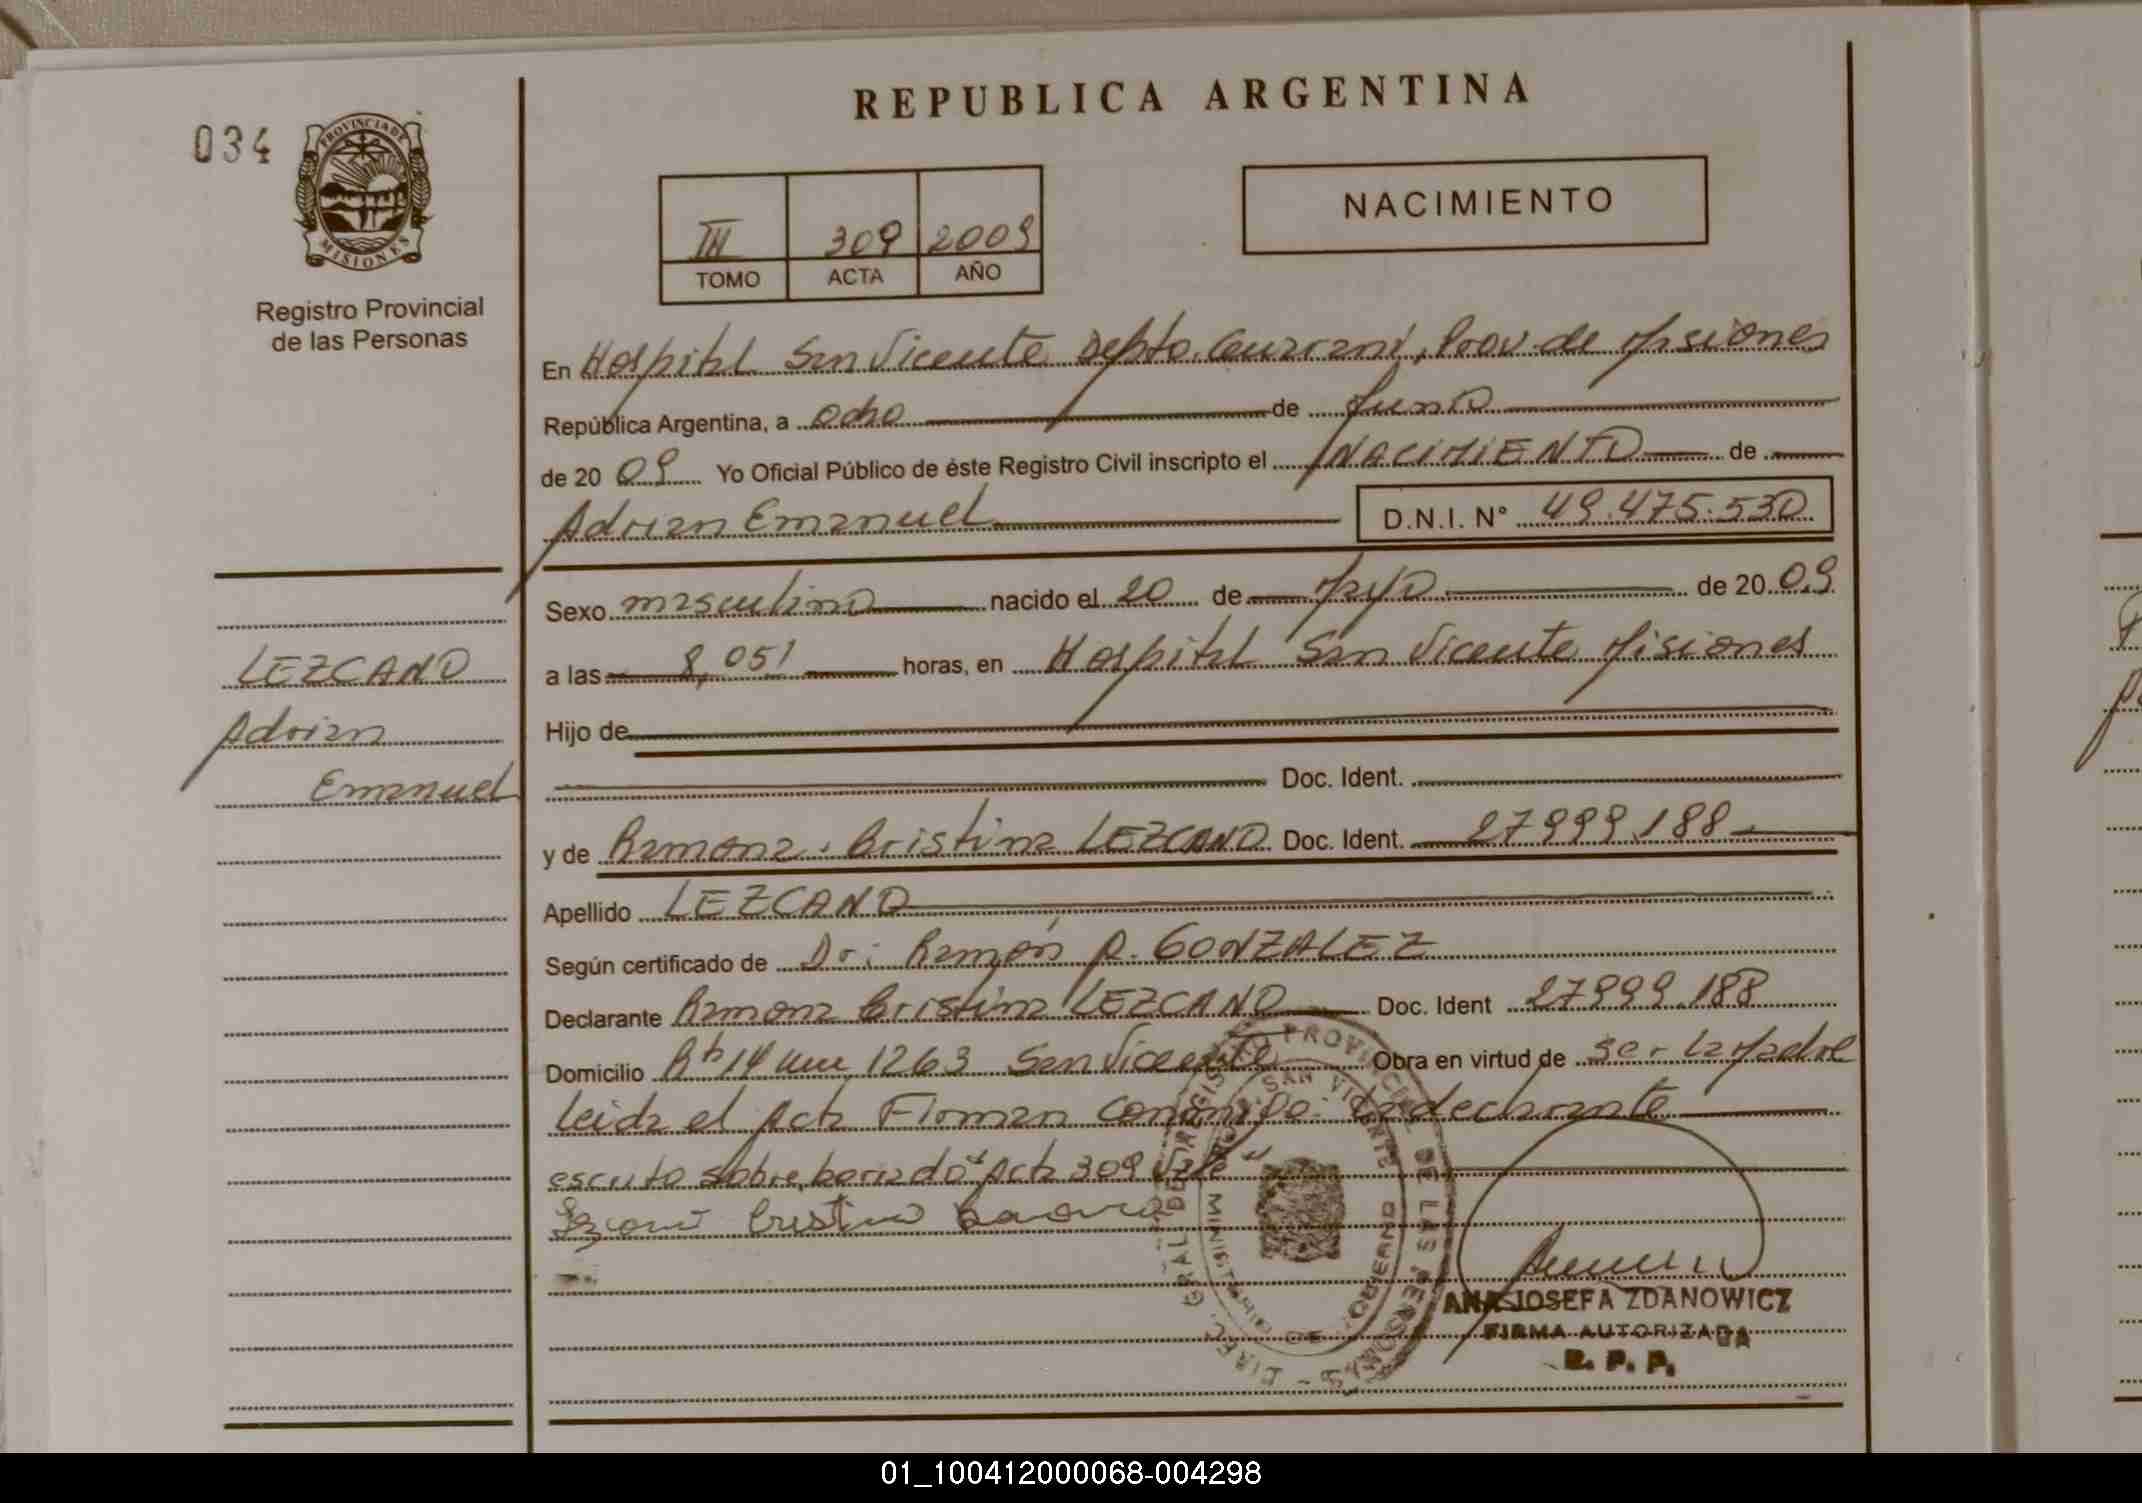 REPUBLICA ARGENTINA
034
PROVINCIA DE
MISIONES
Registro Provincial
de las Personas
III 309 2009
TOMO ACTA AÑO
NACIMIENTO
En Hospital San Vicente Depto. Guaraní, Prov. de Misiones
República Argentina, a ocho de Junio
de 20 09 Yo Oficial Público de éste Registro Civil inscripto el NACIMIENTO de
Adrian Emanuel D.N.I. N° 49.475.530
Sexo masculino nacido el 20 de Mayo de 20 09
a las 8,05' horas, en Hospital San Vicente Misiones
Hijo de
Doc. Ident.
y de Ramona Cristina LEZCANO Doc. Ident. 27999.188
Apellido LEZCANO
Según certificado de Dr: Ramón R. GONZALEZ
Declarante Ramona Cristina LEZCANO Doc. Ident 27999.188
Domicilio Rta 14 km 1263 San Vicente Obra en virtud de ser la Madre
leida el Acta Firman conmigo: la declarante
escrito sobre borrado "Acta 309 vale"
Cristina
LEZCANO
Adrian
Emanuel
DIREC. GRAL. DEL REGISTRO PROVINCIAL DE LAS PERSONAS
SAN VICENTE
MINISTERIO DE GOBIERNO
ANA JOSEFA ZDANOWICZ
FIRMA AUTORIZADA
R. P. P.
01_100412000068-004298